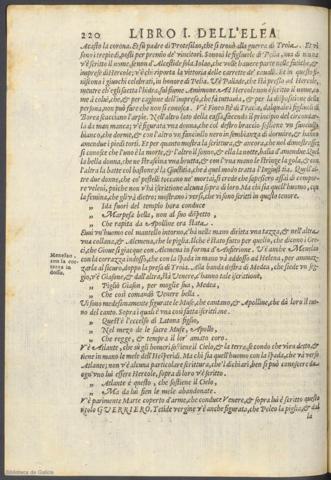 220 LIBRO I. DELL'ELEA
Acasto la corona. Et fu padre di Protesilao, che si trouò alla guerra di Troia. Et vi
sono i trepiedi, posti per premio de' vincitori. Sonoui le figliuole di Pelia, ma di niuna
v'è scritto il nome, fenon d'Alcestide sola. Iolao, che volle hauere parte nelle fatiche,
imprese di Hercole, v'è chi riporta la vittoria delle carrette de' caualli. Et in questo fi-
niscono i giuochi celebrati, in honore di Pelia. V'è Pallade, che stà appresso ad Hercole,
mentre ch'egli saetta l'hidra, sul fiume Amimone. Ad Hercole non è iscritto il nome, co-
me à colui, che, & per cagione dell'impresa, che fà tuttauia, & per la dispositione della
persona, non può fare che non si conosca. V'è Fineo Rè di Tracia,
Borea scacciano l'arpie. Nell'altro lato della cassa, facendo il principio del circondar-
la da man manca; v'è figurata vna donna, che col destro braccio sostiene vn fanciullo
bianco, che dorme, & con l'altro vn fanciullo nero in sembianza di dormire, & hanno
amendui i piedi torti. Et per quanto mostra la scrittura, & ancora, che noi da noi stessi
si conosce che l'uno è la morte, & l'altro il sonno, & ella la notte, balia d'amendue. Quel-
la bella donna, che ne strascina vna brutta, & con l'vna mano le stringe la gola, & con
l'altra la batte col bastone; è la Giustitia, che à quel modo tratta l'Ingiustitia.
le
la femina, che gli và dietro; mostrano i versi, che vi sono scritti in questo tenore
„ Ida fuori del tempio hora conduce
„ Marpesa bella, non al suo dispetto,
„ Che rapita da Apolline era stata.
Euui vn'huomo col mantello intorno, hà nella mano diritta vna tazza, & nell'altra
vna collana, & Alcmena, che la piglia.
ci, che Gioue si giacque con Alcmena in forma d'Anfitrione. V'è anche Menelao
con la corazza indosso, che con la spada in mano và addosso ad Helena, per ammaz-
zarla al sicuro, doppo la presa di Troia. Alla banda destra di Medea, che siede in seg-
gio, v'è Giasone, & dall'altra, stà Venere,
„ Pigliò Giason, per moglie sua, Medea,
„ Che così comandò Venere bella.
Vi sono medesimamente figurate le Muse, che cantano, & Apolline, che dà loro il tuo-
no del canto. Sopra i quali è vna così fatta iscritti me.
„ Quest'è l'eccelso di Latona figlio,
„ Nel mezo de le sacre Muse, Apollo,
„ Che regge, & tempra il lor' amato coro.
V'è Atlante, che sù gli homeri, sostiene il Cielo, & la terra, secondo che viè detto, &
tiene in mano le mele dell'Hesperidi. Ma chi sia quell'huomo con la spada, che và verso
Atlante; non v'è alcuna particolare scrittura, che'l dichiari, ben si può conoscere da
ogn'vno lui essere Hercole, sopra di loro v'è scritto.
„ Atlante è questo, che sostiene il Cielo,
„ Ma da lui fien le mele abandonate.
V'è parimente Marte coperto d'arme, che conduce Venere, & sopra lui è scritto questo
titolo GUERRIERO. Tetide vergine v'è anche figurata, che Peleo la piglia, & dal-
la
Menelao,
con la co-
razza in
dosso.
Biblioteca de Galicia